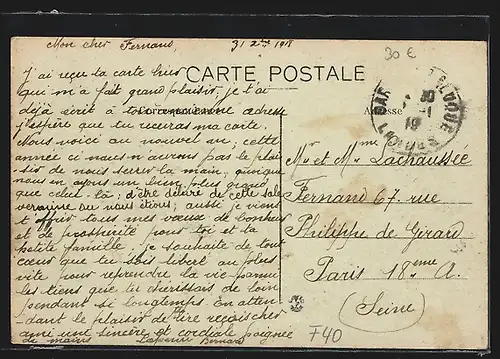 31 Xbre 1918
Mon cher Fernand,
J'ai reçu ta carte hier
qui m'a fait grand plaisir, je t'ai
déjà écrit à ton ancienne adresse
j'espère que tu recevras ma carte.
Nous voici au nouvel an, cette
année ci nous n'aurons pas le plai
sir de nous serrer la main, quoique
nous en ayons un bien plus grand
que celui là, d'être délivré de cette sale
vermine ou nous étions; aussi je viens
t'offrir tous mes vœux de bonheur
et de prospérité pour toi et ta
petite famille. Je souhaite de tout
cœur que tu sois libéré au plus
vite pour reprendre la vie parmi
les tiens que tu chérissais de loin
pendant si longtemps. En atten
dant le plaisir de te lire reçois cher
ami une sincère et cordiale poignée
de mains Bernard
CARTE POSTALE
Correspondance
Adresse
30 €
Mr et Mme Lachaussée
Fernand 67. rue
Philippe de Girard
Paris 18eme A.
(Seine)
F40